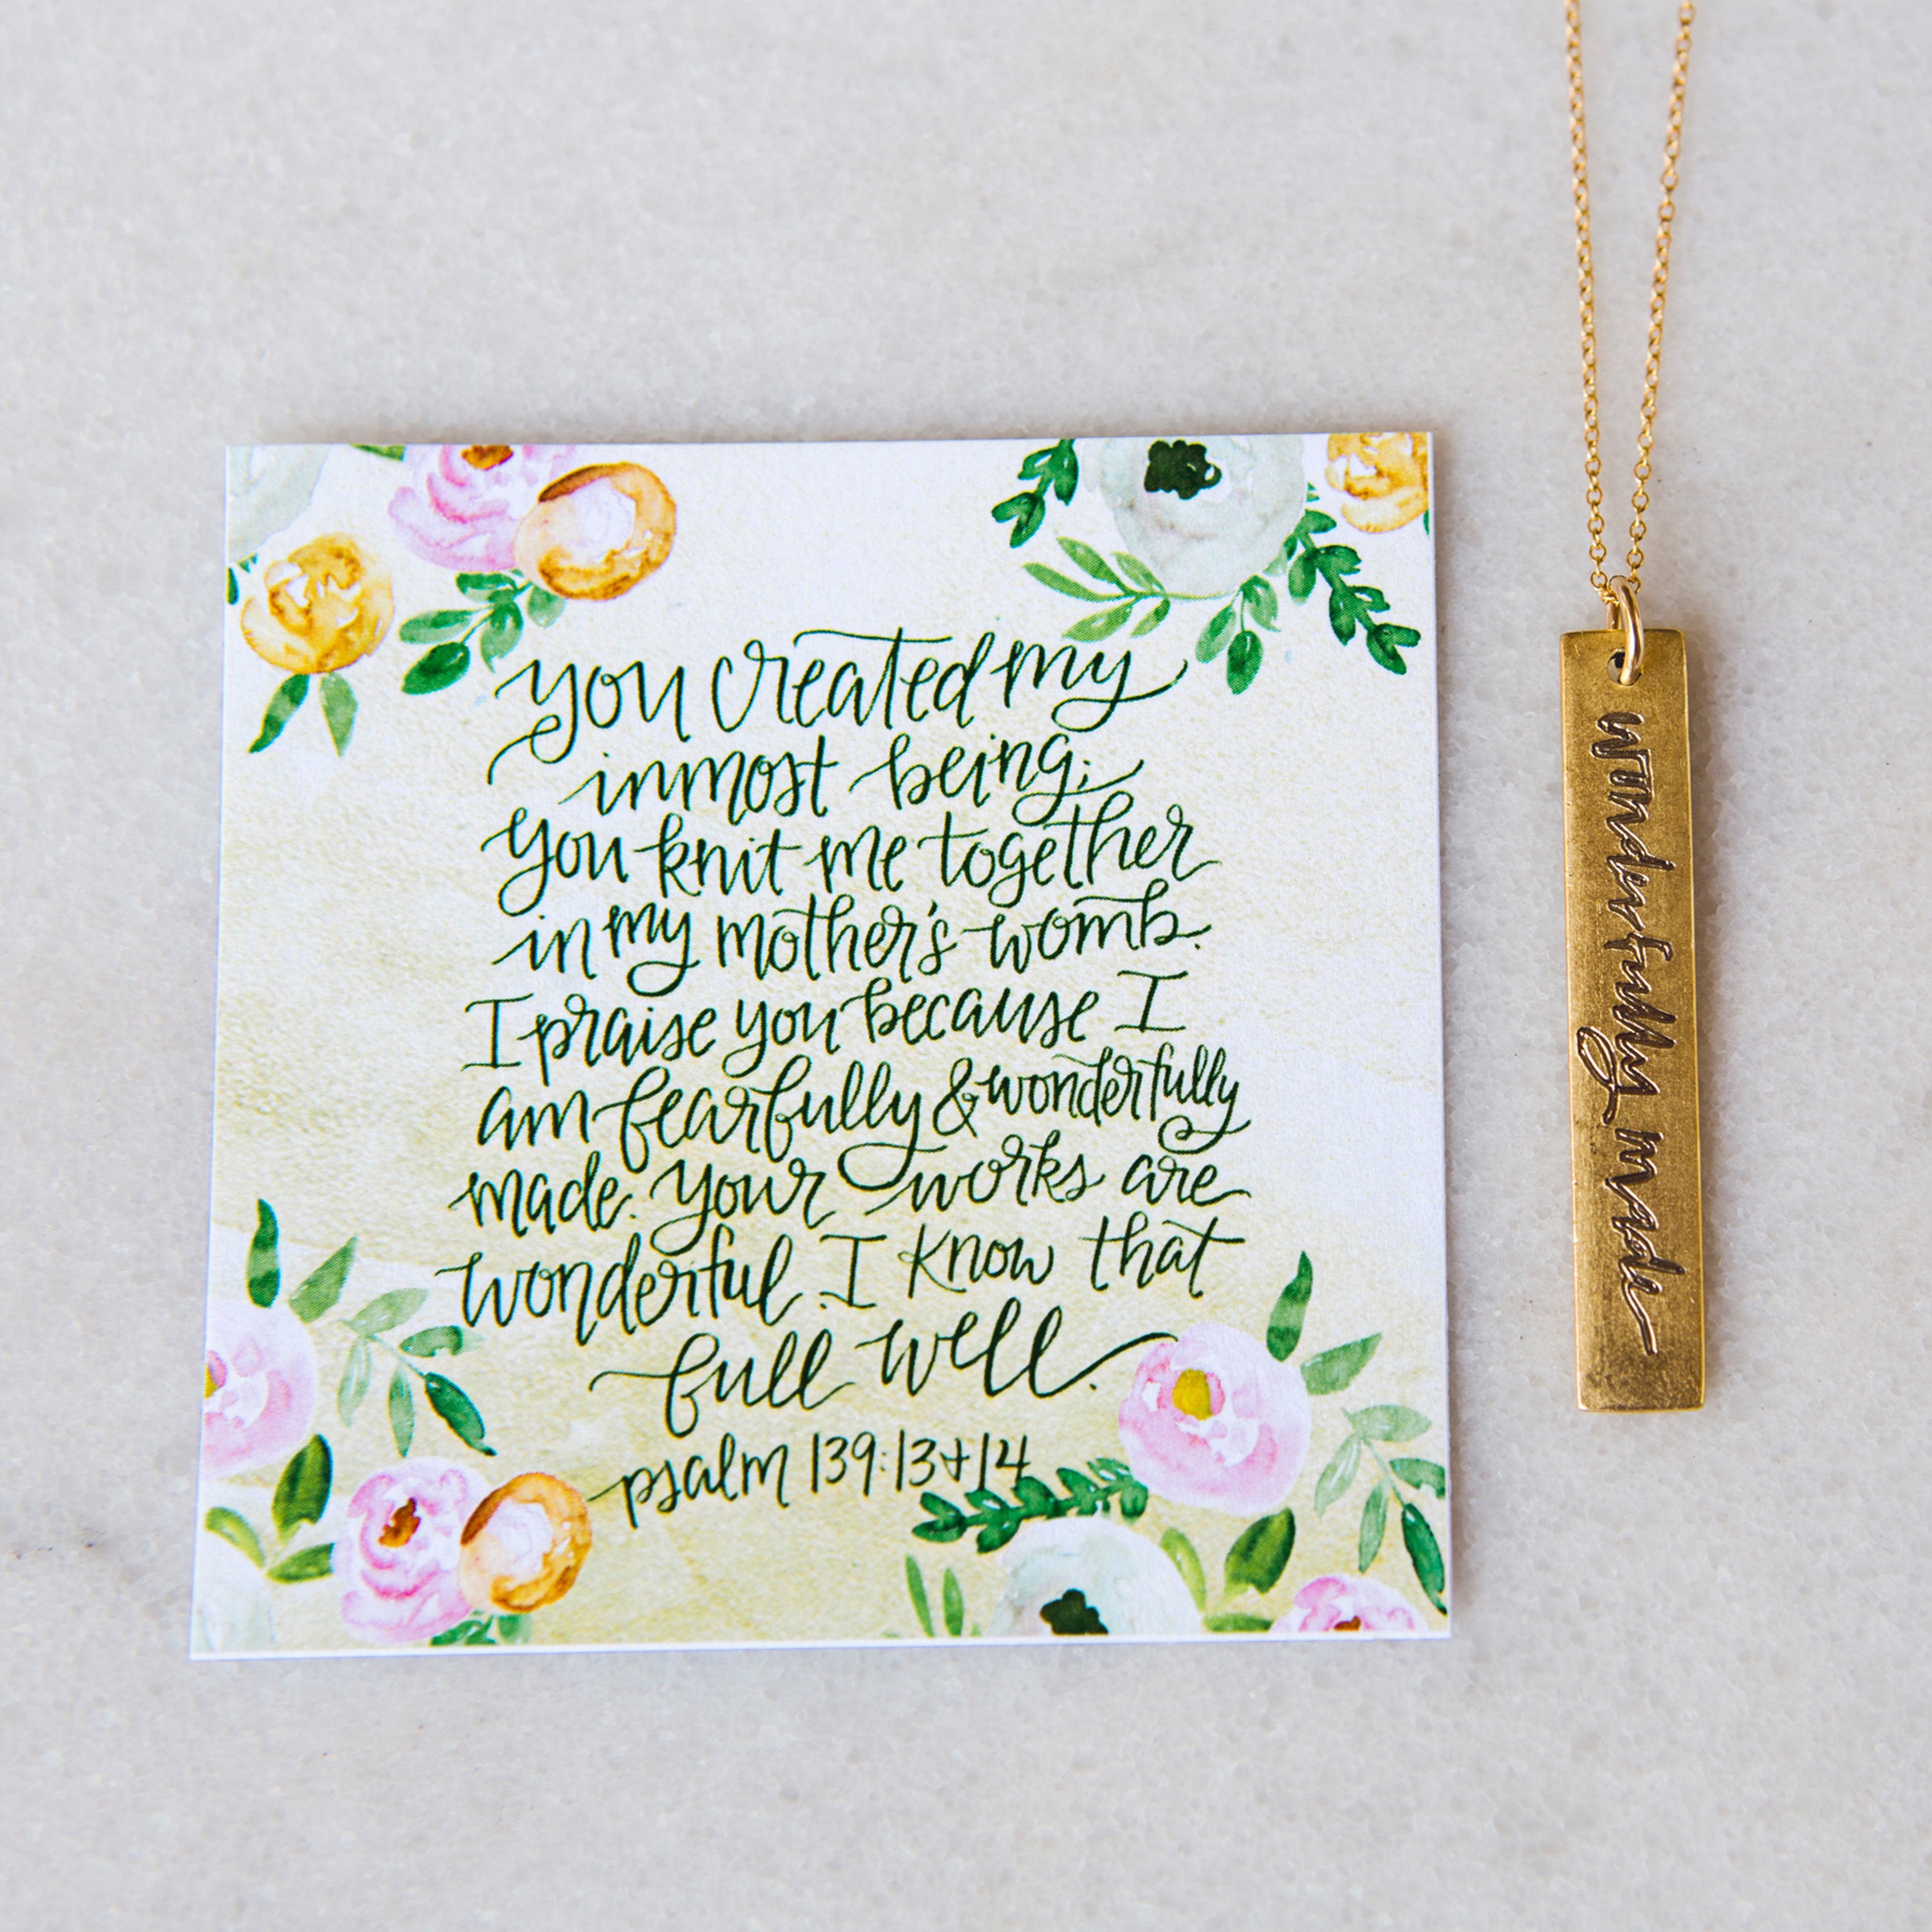 you created my
inmost being;
you knit me together
in my mother's womb.
I praise you because I
am fearfully & wonderfully
made. your works are
wonderful. I know that
full well.
psalm 139:13+14
wonderfully made